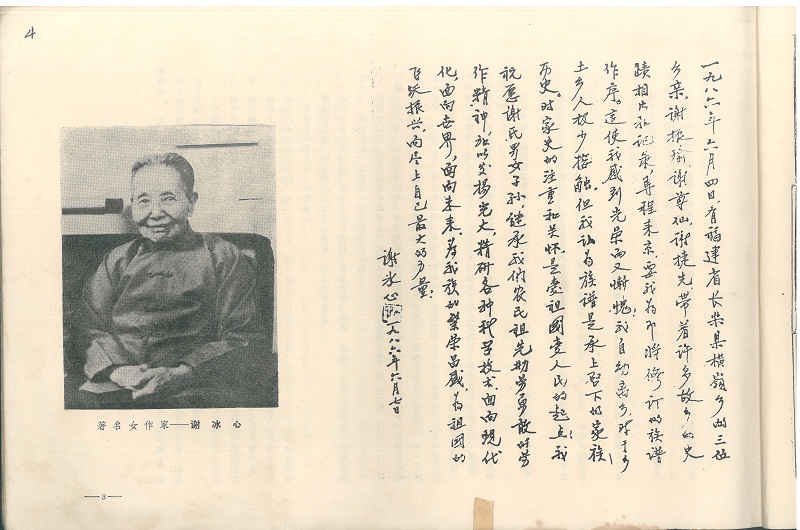 4
一九八六年六月四日,有福建省长乐县横嶺乡的三位
乡亲,谢振瑜、谢尊仙、谢捷先带着许多故乡的史
蹟相片和记录,专程来京,要我为即将修订的族谱
作序。这使我感到光荣而又惭愧!我自幼离乡,对于乡
土乡人极少接触。但我认为族谱是承上启下的家族
历史。对家史的注重和关怀,是爱祖國爱人民的起点!我
祝愿谢氏男女子孙,继承我们农民祖先勤劳勇敢的劳
作精神,加以发扬光大,精研各种科学技术,面向现代
化,面向世界,面向未来,为我族的繁荣昌盛,为祖國的
飞跃振兴,而尽上自己最大的力量!
谢冰心 一九八六年六月七日
著名女作家——谢冰心
—3—